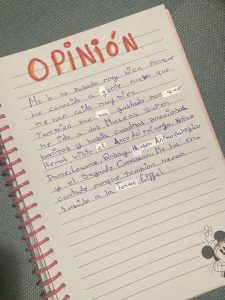 OPINIÓN
Me lo he pasado muy bien porque
he conocido a gente nueva que
me han caído muy bien.
También me ha gustado porque
he ido a dos Museos super
bonitos y había cuadros preciosos.
Hemos visto el Arco del triunfo, Notre
Dame, Louvre, Orsay, Museo Antropológico
y el Sagrado Corazón. Me ha en-
cantado porque también hemos
subido a la Torre Eiffel.